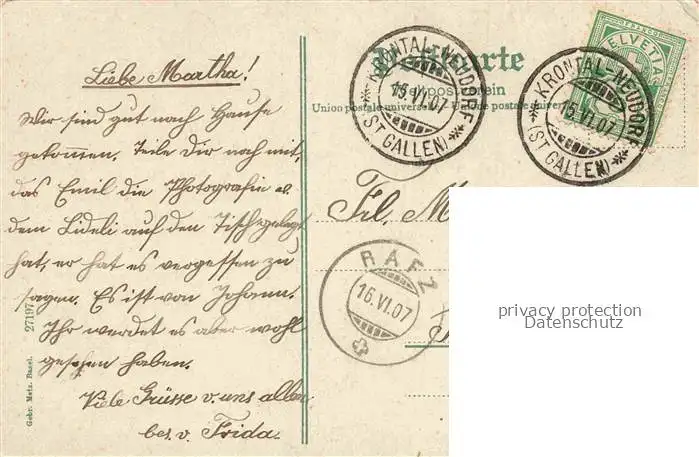 Liebe Martha!
Wir sind gut nach Hause
gekommen. Teile Dir noch mit,
das Emil die Photografie v.
dem Lideli auf den Tisch gelegt
hat, er hat es vergessen zu
sagen. Es ist von Johann.
Ihr werdet es aber wohl
gesehen haben.
Viele Grüsse v. uns allen
bes. v. Frida.
Gebr. Metz, Basel. 27197
Postkarte
Weltpostverein
Union postale universelle. Unione postale univer
KRONTAL-NEUDORF
15.VI.07
(ST GALLEN)
KRONTAL-NEUDORF
15.VI.07
(ST GALLEN)
FRANCO
HELVETIA
Frl. M
RAFZ
16.VI.07
privacy protection
Datenschutz